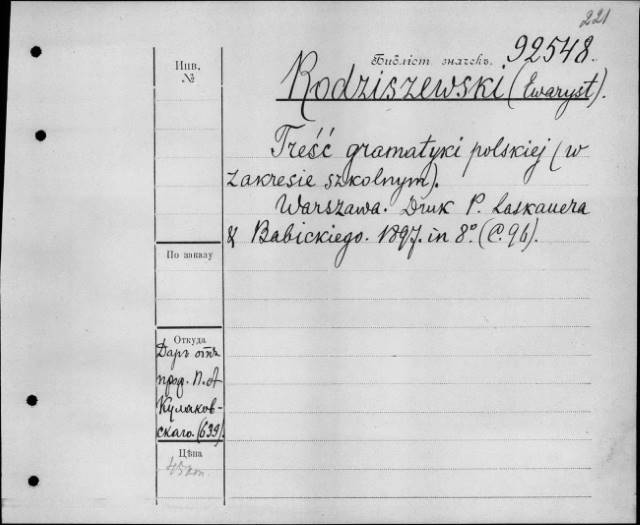 221
Инв. №
Библіот. значекъ. 92548.
Rodziszewski (Ewaryst).
Treść gramatyki polskiej (w
zakresie szkolnym).
Warszawa. Druk P. Laskauera
& Babickiego. 1897. in 8° (С. 96).
По заказу
Откуда
Даръ отъ
проф. П. А
Кулаков-
скаго. (639).
Цѣна
45 коп.